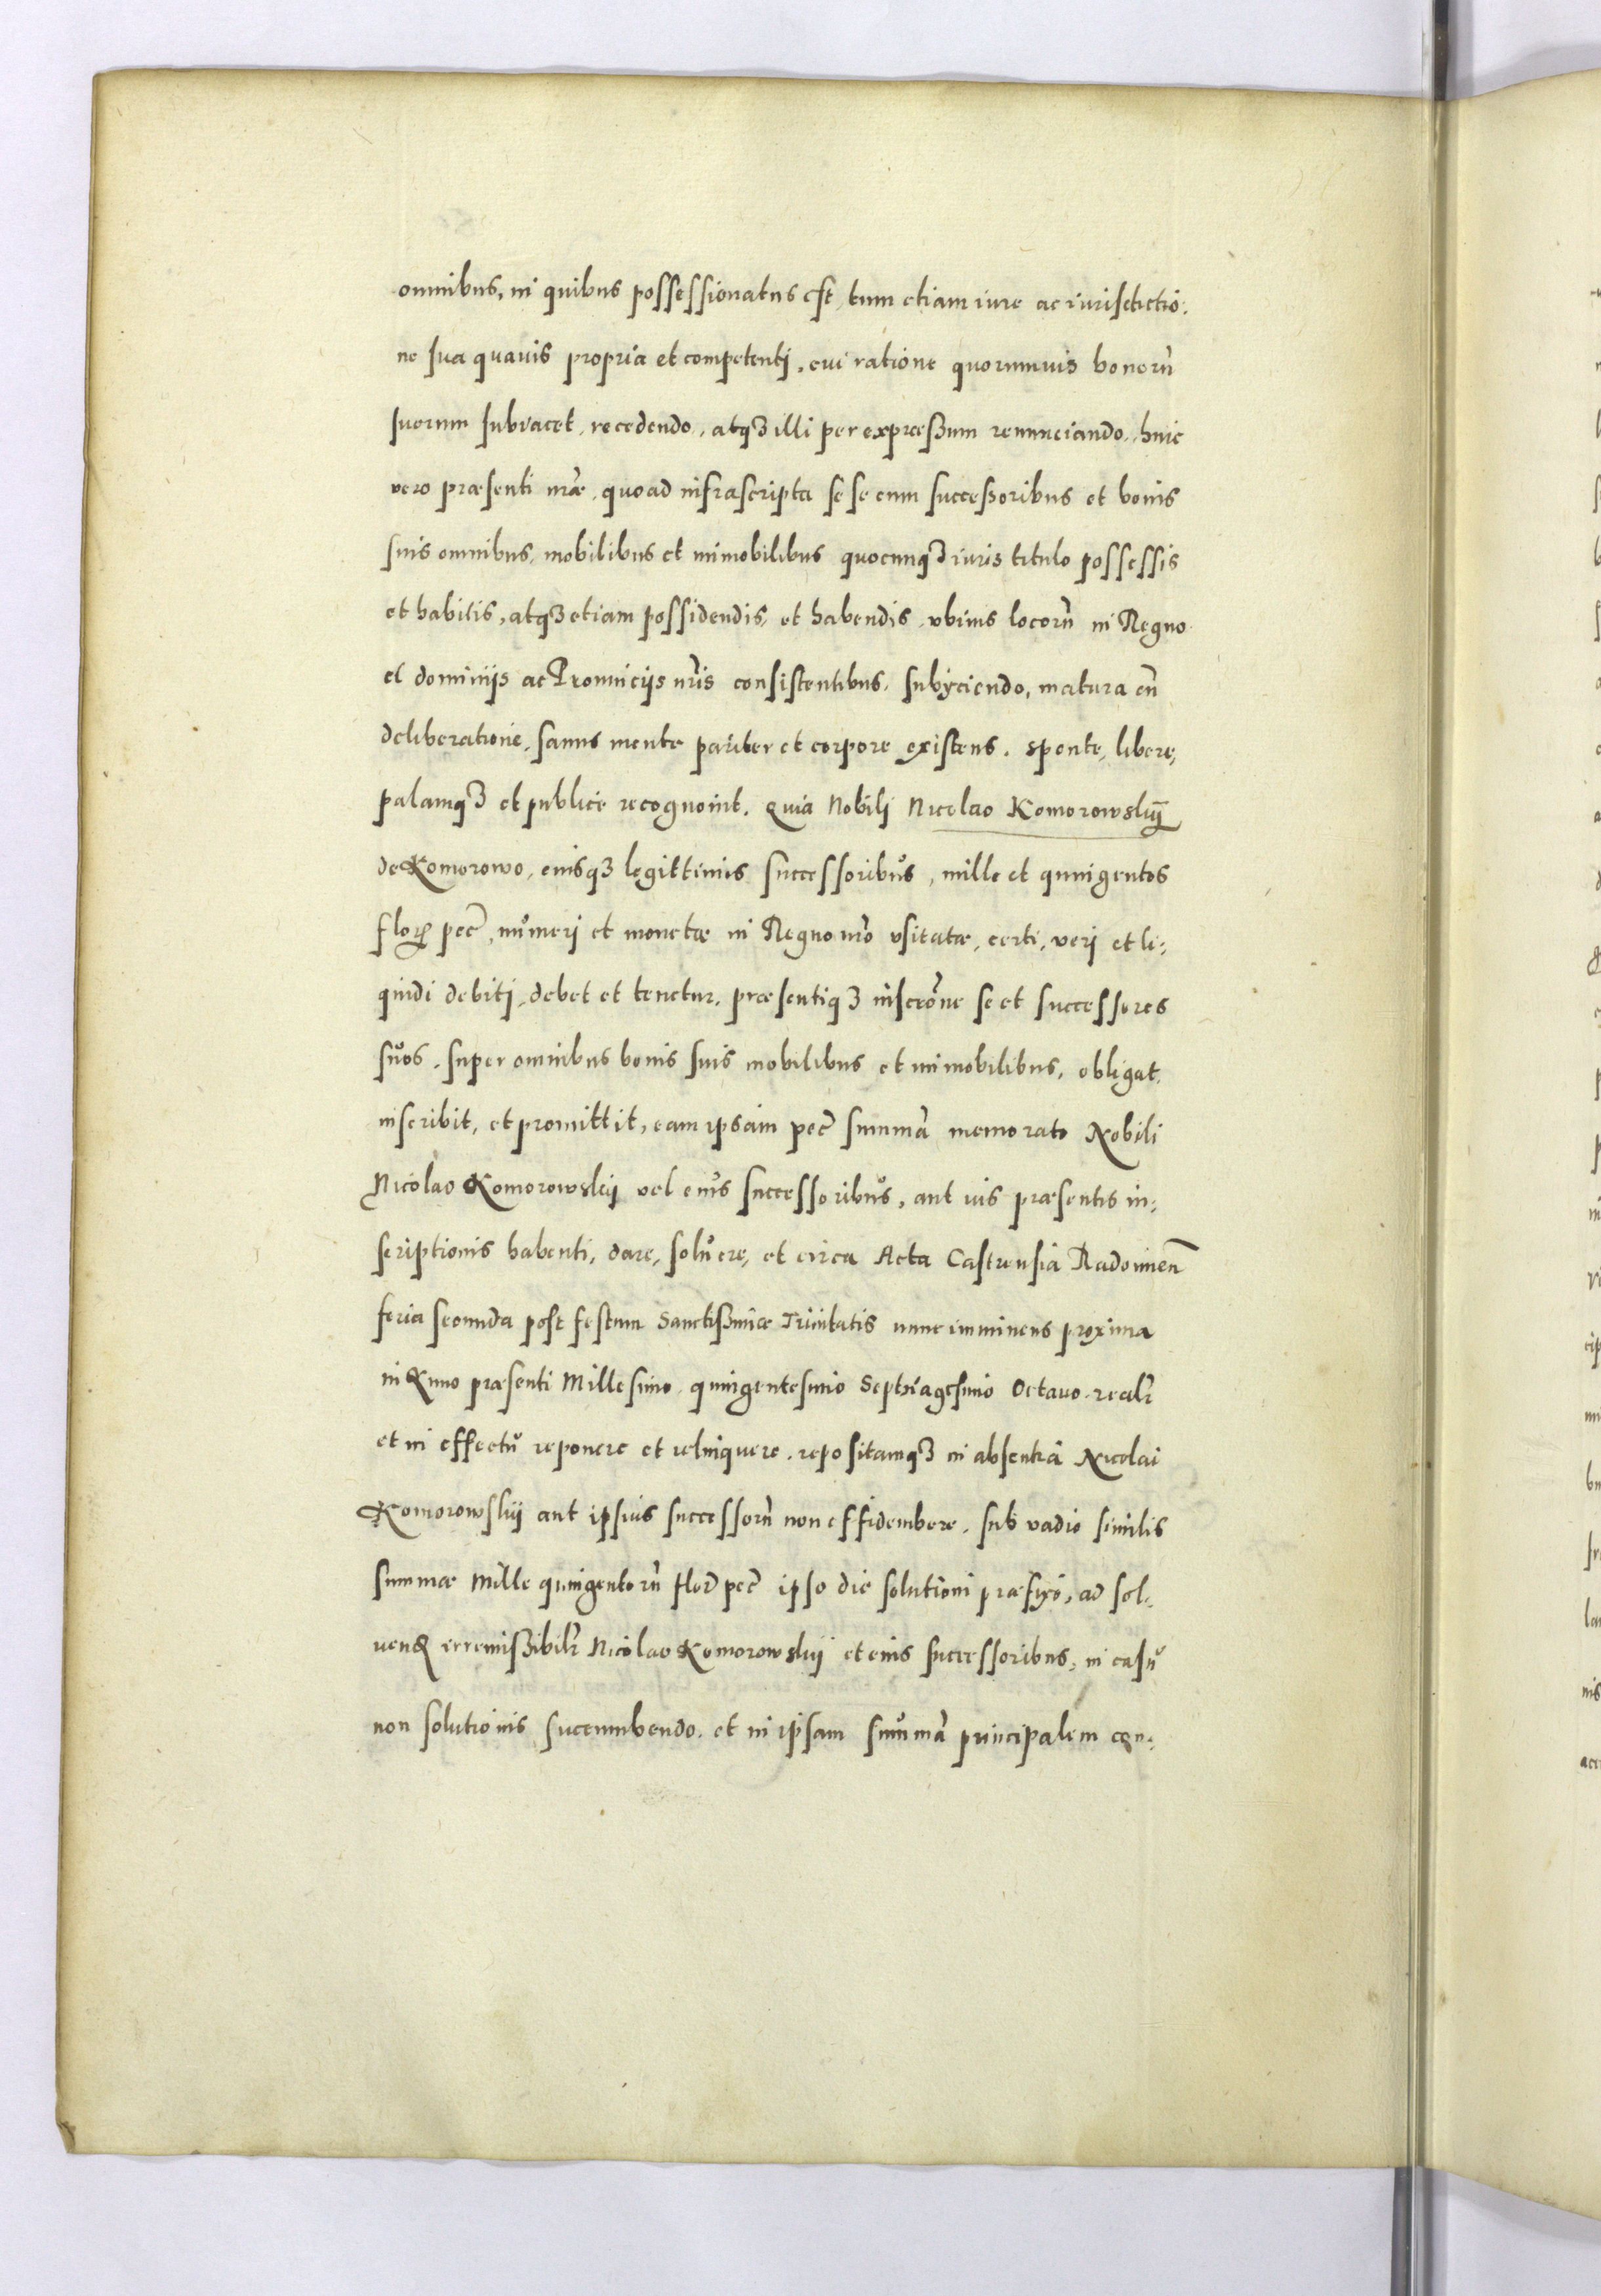 omnibus, in quibus possessionatus est, tum etiam iure ac iurisdictio:
ne sua quauis propria et competenti, cui ratione quorumuis bonorũ
suorum subiacet, recedendo, atqʒ illi per expressum renunciando, huic
vero præsenti nr̃æ, quoad infrascripta sese cum successoribus et bonis
suis omnibus, mobilibus et immobilibus quocunqʒ iuris titulo possessis
et habitis, atqʒ etiam possidendis, et habendis, vbiuis locorũ in Regno
et dominijs ac Prouincijs nr̃is consistentibus, subijciendo, matura cũ
deliberatione, sanus mente pariter et corpore existens. sponte, libere,
palamqʒ et publice recognouit. Quia Nobili Nicolao Komorowskij
de Komorowo, eiusqʒ legittimis successoribus, mille et quingentos
floꝝ pec̃, numeri et monetæ in Regno nr̃o vsitatæ, certi, veri et li:
quidi debiti, debet et tenetur, præsentiqʒ inscrõne se et successores
suos, super omnibus bonis suis mobilibus et immobilibus, obligat,
inscribit, et promittit, eam ipsam pec̃ summã memorato Nobili
Nicolao Komorowskij vel eius successoribus, aut ius præsentis in:
scriptionis habenti, dare, soluere, et circa Acta Castrensia Radomien̄
feria secunda post festum Sanctissimæ Trinitatis nunc imminens proxima
in Anno præsenti Millesimo quingentesimo Septuagesimo Octauo realr̃
et in effectu reponere et relinquere, repositamqʒ in absentia Nicolai
Komorowskij aut ipsius successorũ non effidembere, sub vadio similis
summæ Mille quingentorũ flor̃ pec̃ ipso die solutioni præfixo, ad sol:
uend̃ irremissibilr̃ Nicolao Komorowskij et eius successoribus, in casu
non solutionis succumbendo, et in ipsam summã principalem con: